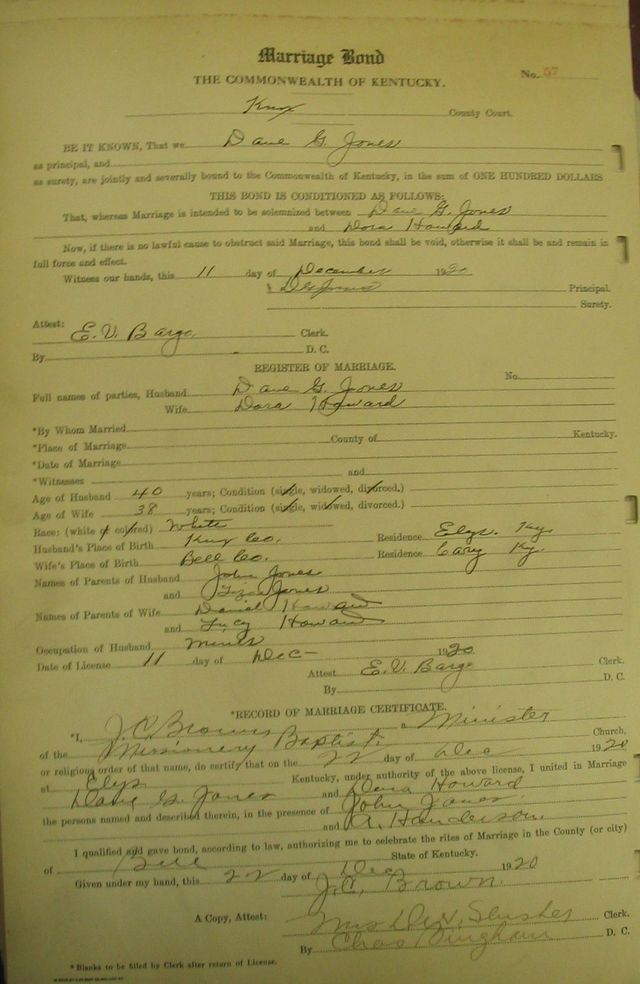 Marriage Bond
No. 57
THE COMMONWEALTH OF KENTUCKY.
Knox County Court.
BE IT KNOWN, That we Dave G. Jones
as principal, and
as surety, are jointly and severally bound to the Commonwealth of Kentucky, in the sum of ONE HUNDRED DOLLARS
THIS BOND IS CONDITIONED AS FOLLOWS:
That, whereas Marriage is intended to be solemnized between Dave G. Jones
and Dora Howard
Now, if there is no lawful cause to obstruct said Marriage, this bond shall be void, otherwise it shall be and remain in
full force and effect.
Witness our hands, this 11 day of December 1920
Principal.
Surety.
Attest:
E. V. Bargo Clerk.
By D. C.
REGISTER OF MARRIAGE.
No.
Full names of parties, Husband Dave G. Jones
Wife Dora Howard
*By Whom Married
*Place of Marriage County of Kentucky.
*Date of Marriage
*Witnesses and
Age of Husband 40 years; Condition (single, widowed, divorced.)
Age of Wife 38 years; Condition (single, widowed, divorced.)
Race: (white or colored) White
Husband's Place of Birth Knox Co. Residence Elys. Ky.
Wife's Place of Birth Bell Co. Residence Cary Ky.
Names of Parents of Husband John Jones
and Liza Jones
Names of Parents of Wife Daniel Howard
and Lucy Howard
Occupation of Husband Miner
Date of License 11 day of Dec- 1920
Attest E. V. Bargo Clerk.
By D. C.
*RECORD OF MARRIAGE CERTIFICATE.
*I, J. C. Brown a Minister
of the Missionery Baptist, Church,
or religious order of that name, do certify that on the 22 day of Dec 1920
at Elys Kentucky, under authority of the above license, I united in Marriage
Dave G. Jones and Dora Howard
the persons named and described therein, in the presence of John Jones
and A. Handerson.
I qualified and gave bond, according to law, authorizing me to celebrate the rites of Marriage in the County (or city)
of Bell State of Kentucky.
Given under my hand, this 22 day of Dec 1920
J. C. Brown.
A Copy, Attest: Mrs D. W. Slusher Clerk.
By Chas Bingham D. C.
* Blanks to be filled by Clerk after return of License.